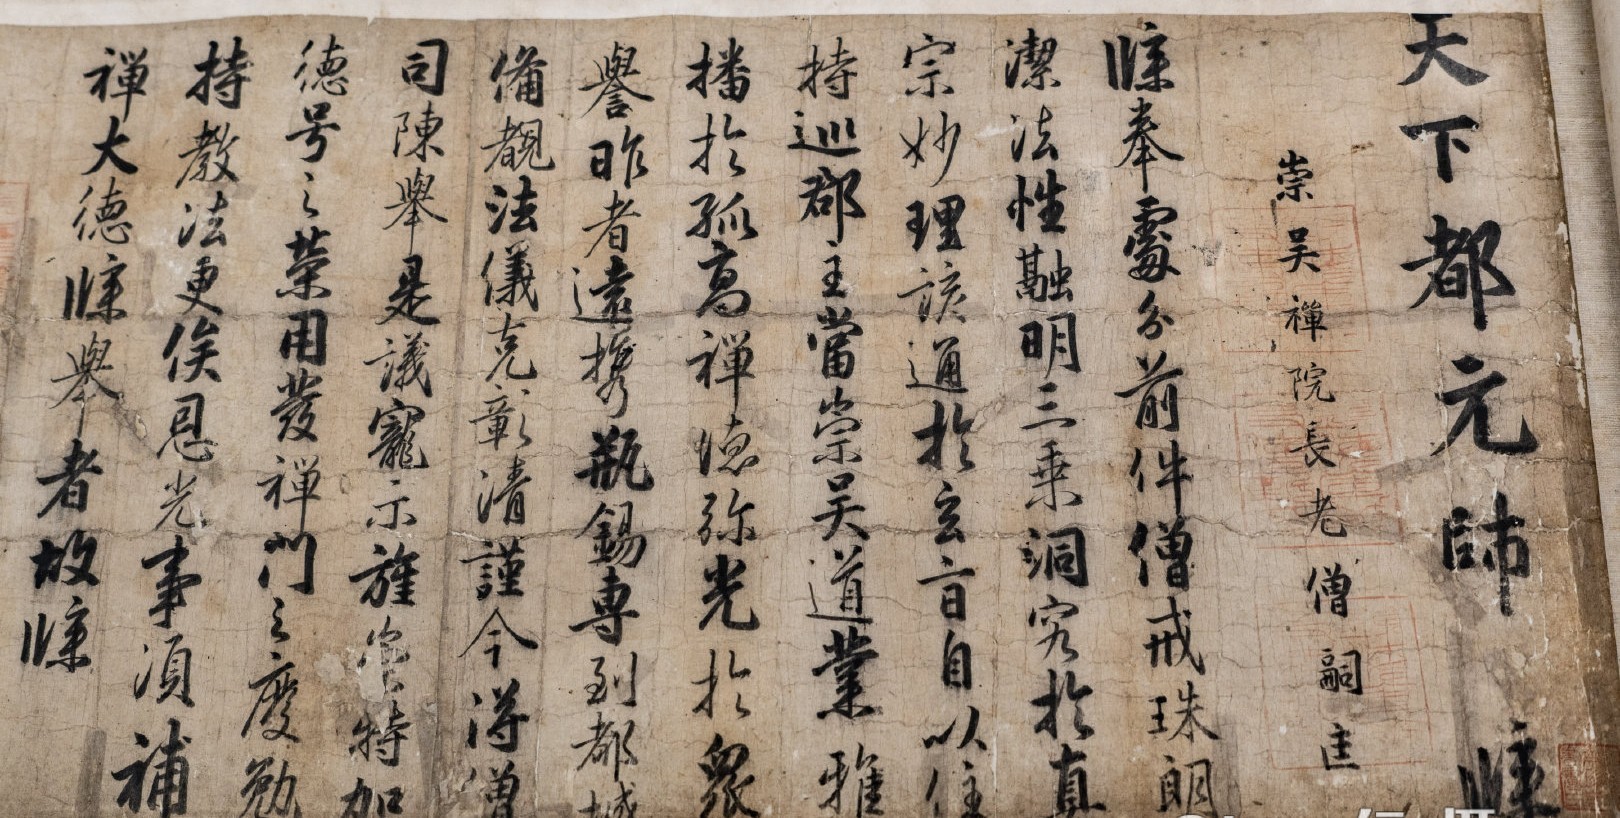 天下都元帥 牒
崇吴禪院長老僧嗣匡
牒奉處分前件僧戒珠朗
潔法性融明三乗洞究於真
宗妙理該通於玄言自以住
持巡郡主當崇吴道業雅
播於孤高禪德弥光於衆
譽昨者遠携瓶錫專到都城
備覩法儀克彰清謹今得僧
司陳舉是議寵示旌 特加
德号之榮用發禪門之慶勉
持教法更俟恩光事須補
禪大德牒舉者故牒